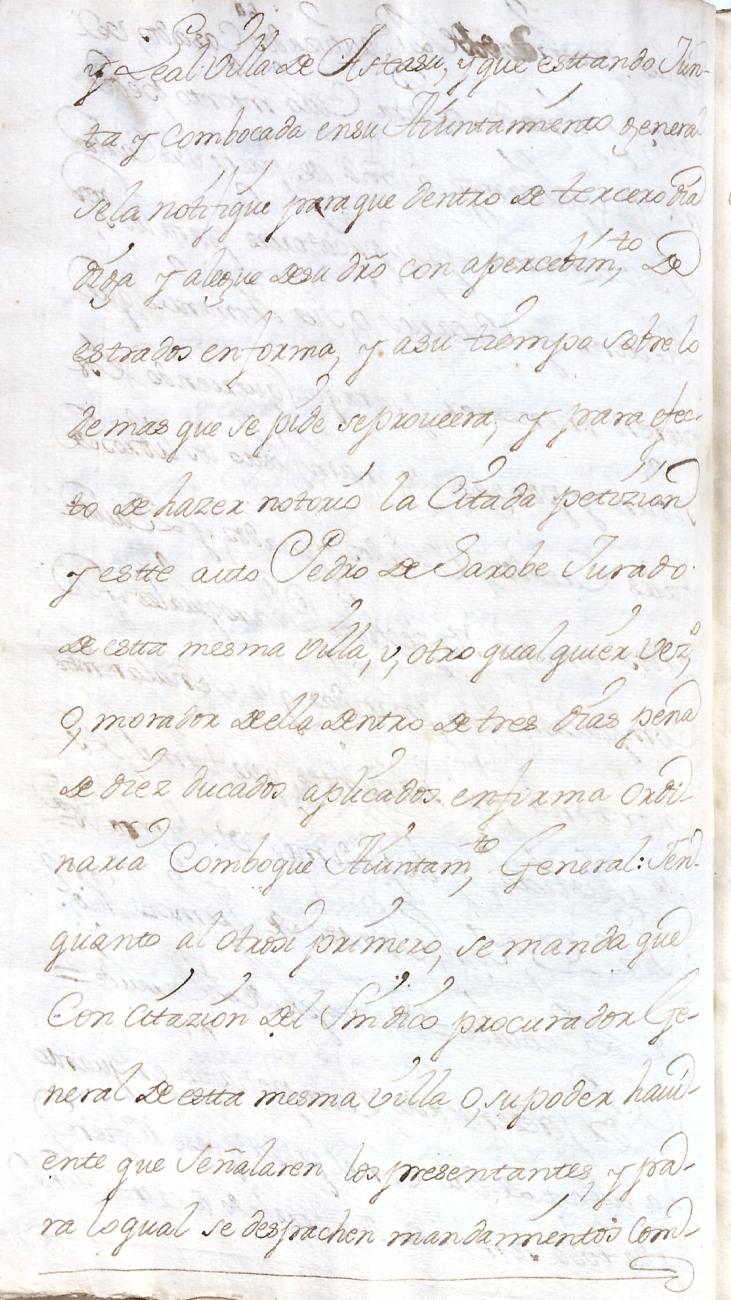 y Leal Villa de Asteasu, y que esttando Jun-
ta y combocada en su Aiuntamiento general
se la notifique para que dentro de tercero dia
diga y alegue de su dr̃o con apercebim,to de
estrados en forma, y a su tiempo sobre lo
demas que se pide se proueera, y para efec-
to de hazer notorio la Citada petizion
y estte auto Pedro de Sarobe Jurado
de estta mesma Villa, v, otro qualquier vez,o
O, morador della dentro de tres dias pena
de diez ducados aplicados en forma Ordi-
naria Comboque Aiuntam,to General: Y en
quanto al otrosi primero, se manda que
Con Citazion del Sindico procurador Ge-
neral de estta mesma Villa O, su poder haui-
ente que Señalaren los presentantes, y pa-
ra lo qual se despachen mandamientos Com-